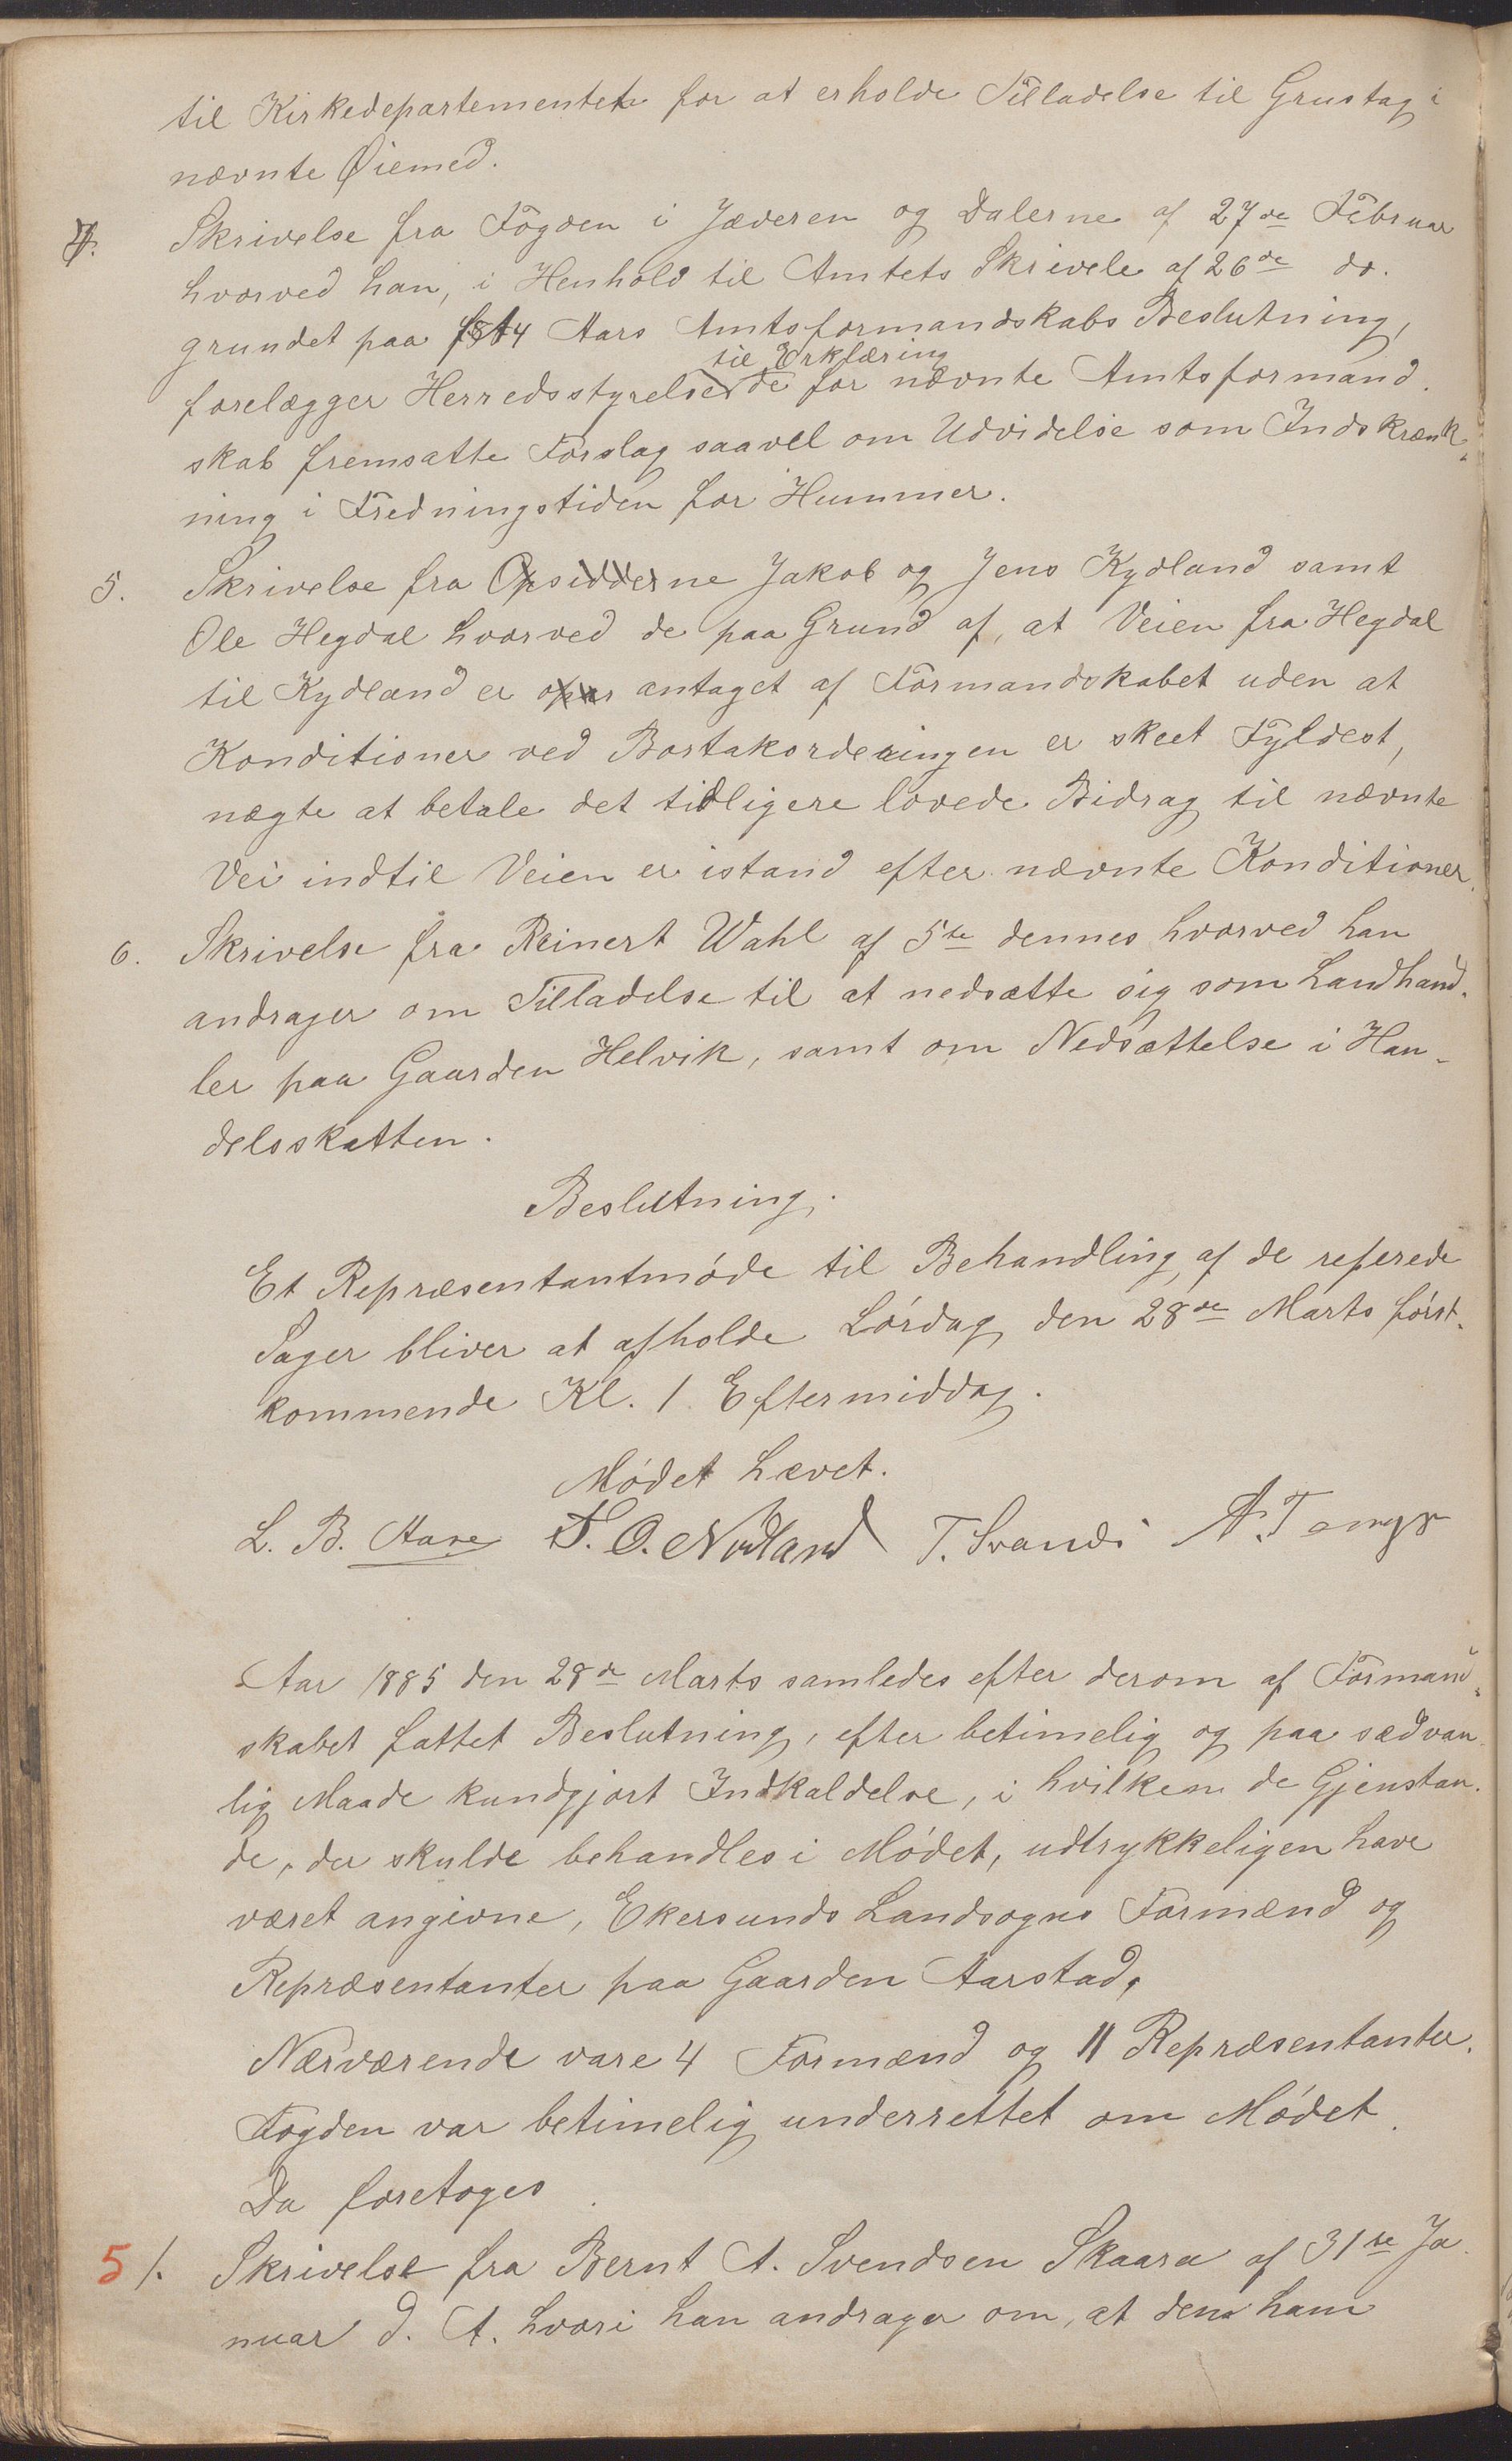 til Kirkedepartementet for at erholde Tilladelse til Grustag i
nævnte Øiemed.
4. Skrivelse fra Fogden i Jæderen og Dalerne af 27de Februar
hvorved han, i Henhold til Amtets Skrivele af 26de do.
grundet paa 1884 Aars Amtsformandskabs Beslutning,
til Erklæring
forelægger Herredsstyrelse de for nævnte Amtsformand-
skab fremsatte Forslag saavel om Udvidelse som Indskrænk-
ning i Fredningstiden for Hummer.
5. Skrivelse fra Opsidderne Jakob og Jens Kydland samt
Ole Hegdal hvorved de paa Grund af, at Veien fra Hegdal
til Kydland er antaget af Formandskabet uden at
Konditioner ved Bortakorderingen er skeet Fyldest,
nægte at betale det tidligere lovede Bidrag til nævnte
Vei indtil Veien er istand efter nævnte Konditioner.
6. Skrivelse fra Reinert Wahl af 5te dennes hvorved han
andrager om Tilladelse til at nedsætte sig som Landhand-
ler paa Gaarden Helvik, samt om Nedsættelse i Han-
delsskatten.
Beslutning.
Et Repræsentantmøde til Behandling af de referede
Sager bliver at afholde Lørdag den 28de Marts først-
kommende Kl. 1 Eftermiddag.
Mødet hævet.
L. B. Aase T. O. Nodland T. Svanes A. Tengs
Aar 1885 den 28de Marts samledes efter derom af Formand-
skabet fattet Beslutning, efter betimelig og paa sædvan-
lig Maade kundgjort Indkaldelse, i hvilken de Gjenstan-
de, der skulde behandles i Mødet, udtrykkeligen have
været angivne, Ekersunds Landsogns Formænd og
Repræsentanter paa Gaarden Aarstad.
Nærværende vare 4 Formænd og 11 Repræsentanter.
Fogden var betimelig underrettet om Mødet.
Da foretoges
5 1. Skrivelse fra Bernt A. Svendsen Skaara af 31te Ja-
nuar d. A. hvori han andrager om, at den ham